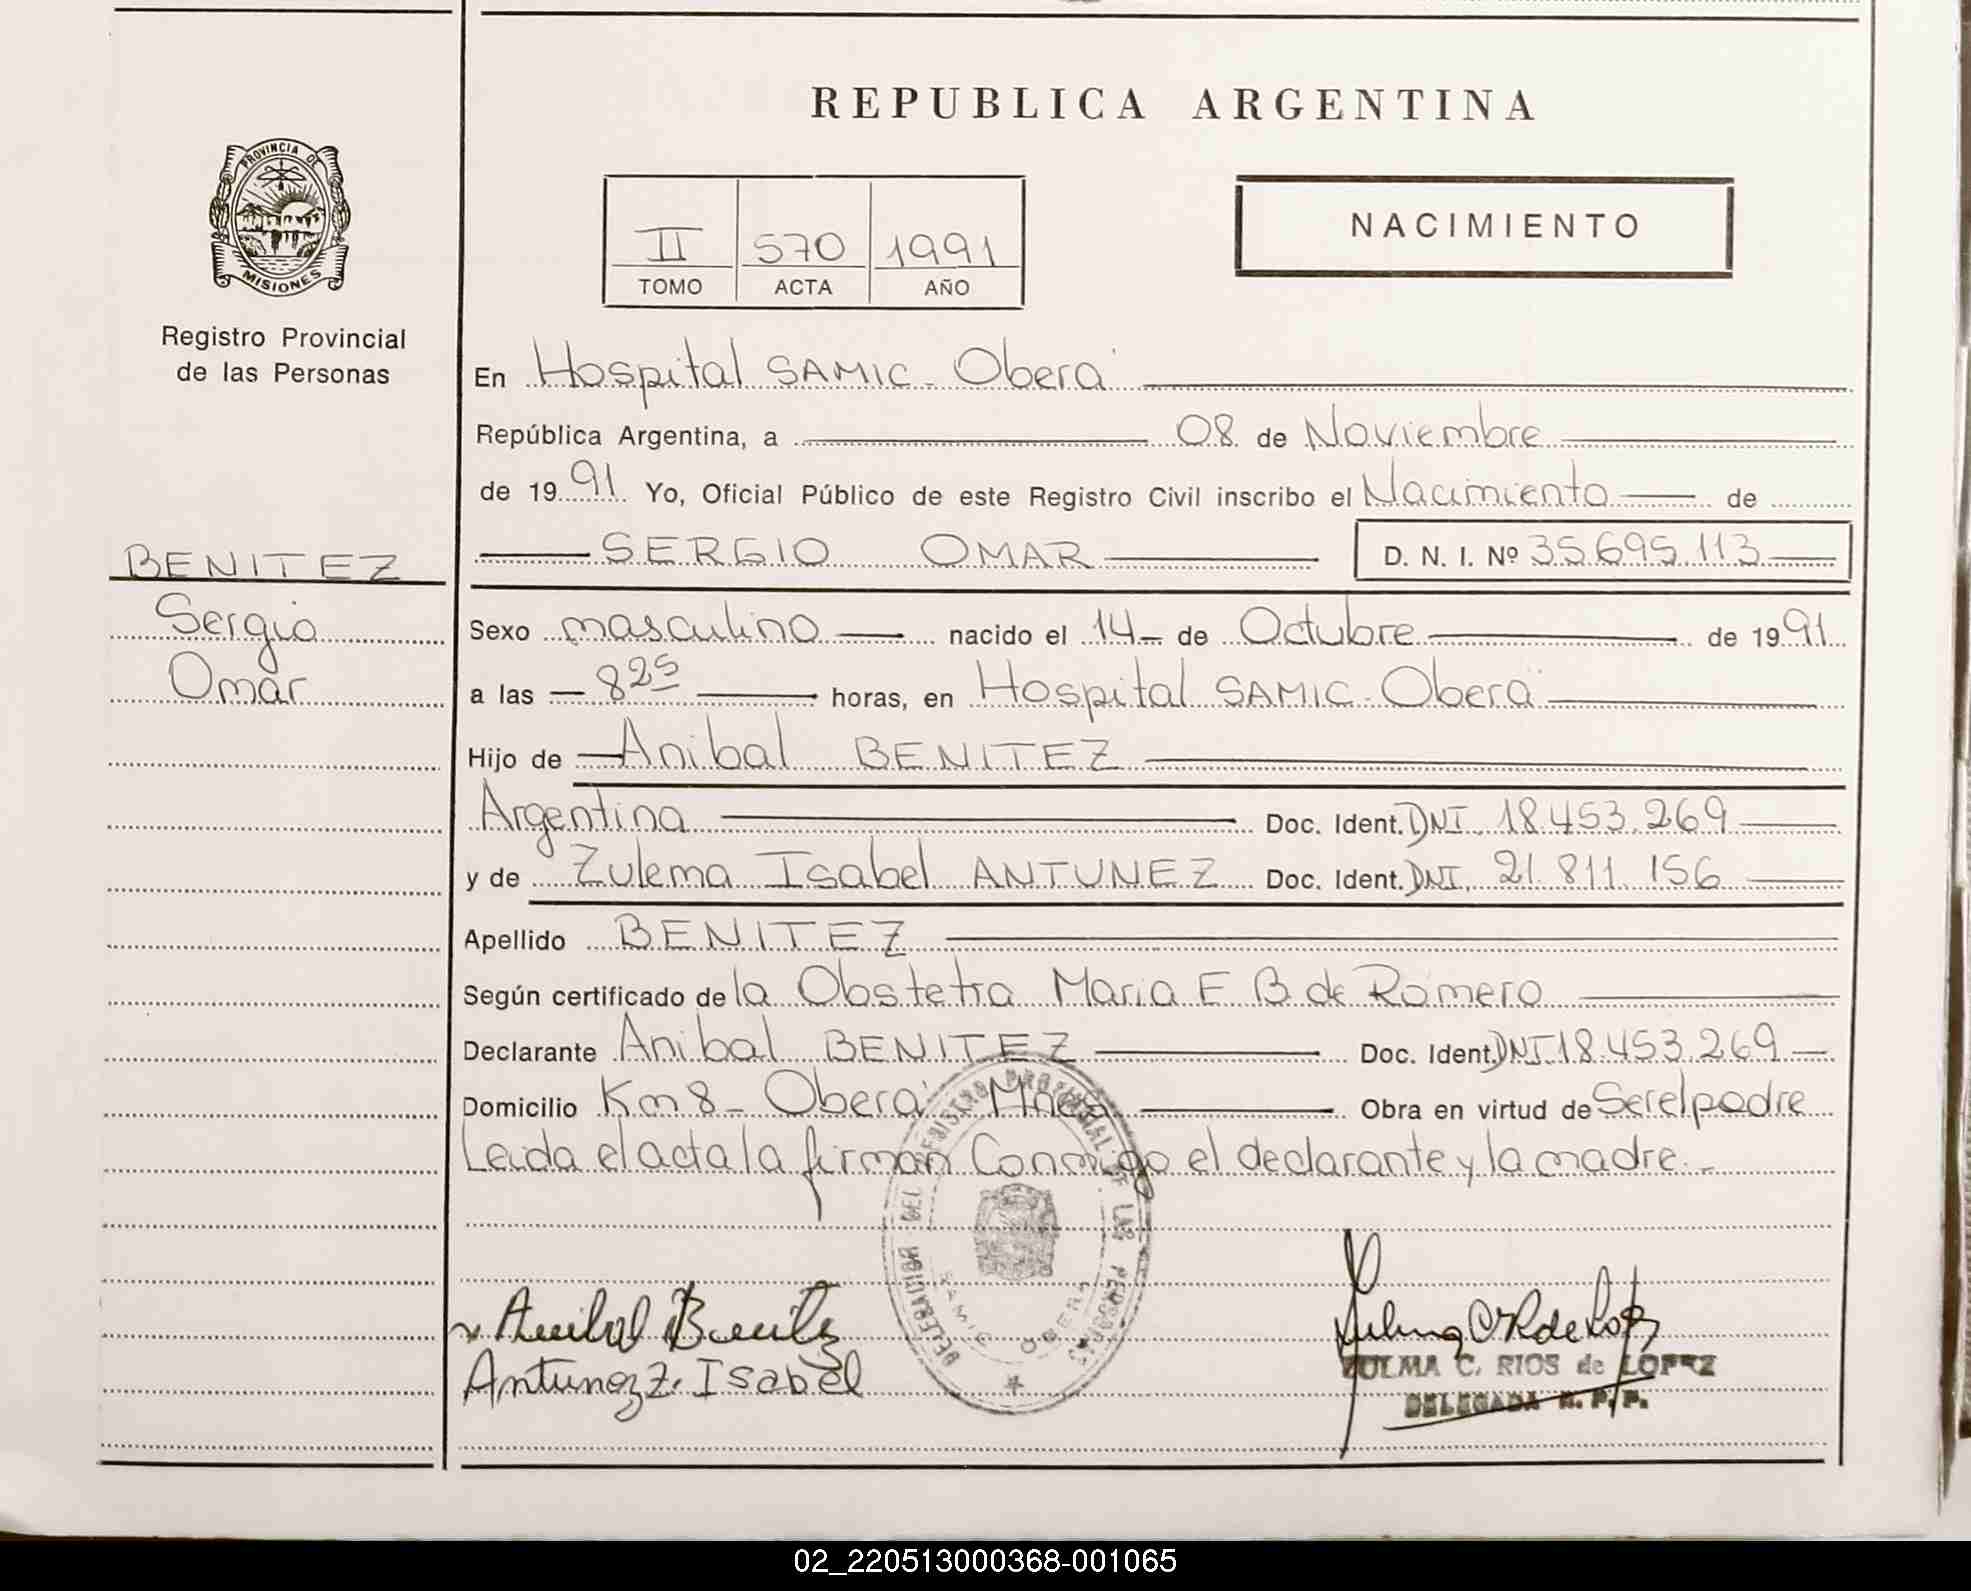 REPUBLICA ARGENTINA
PROVINCIA DE
MISIONES
Registro Provincial
de las Personas
II 570 1991
TOMO ACTA AÑO
NACIMIENTO
En Hospital SAMIC - Oberá
República Argentina, a 08 de Noviembre
de 1991 Yo, Oficial Público de este Registro Civil inscribo el Nacimiento de
SERGIO OMAR D. N. I. Nº 35.695.113
BENITEZ
Sergio
Omar
Sexo masculino nacido el 14 de Octubre de 1991
a las 8 25 horas, en Hospital SAMIC - Oberá
Hijo de Anibal BENITEZ
Argentina Doc. Ident. DNI. 18.453.269
y de Zulema Isabel ANTUNEZ Doc. Ident. DNI. 21.811.156
Apellido BENITEZ
Según certificado de la Obstetra Maria E B de Romero
Declarante Anibal BENITEZ Doc. Ident. DNI 18.453.269
Domicilio Km 8 - Oberá Mnes. Obra en virtud de Ser el padre
Leida el acta la firman Conmigo el declarante y la madre.-
DELEGACION DEL REGISTRO PROVINCIAL DE LAS PERSONAS
SAMIC OBERA
Anibal Benitez
Antunez Z. Isabel
ZULMA C. RIOS de LOPEZ
DELEGADA R. P. P.
02_220513000368-001065